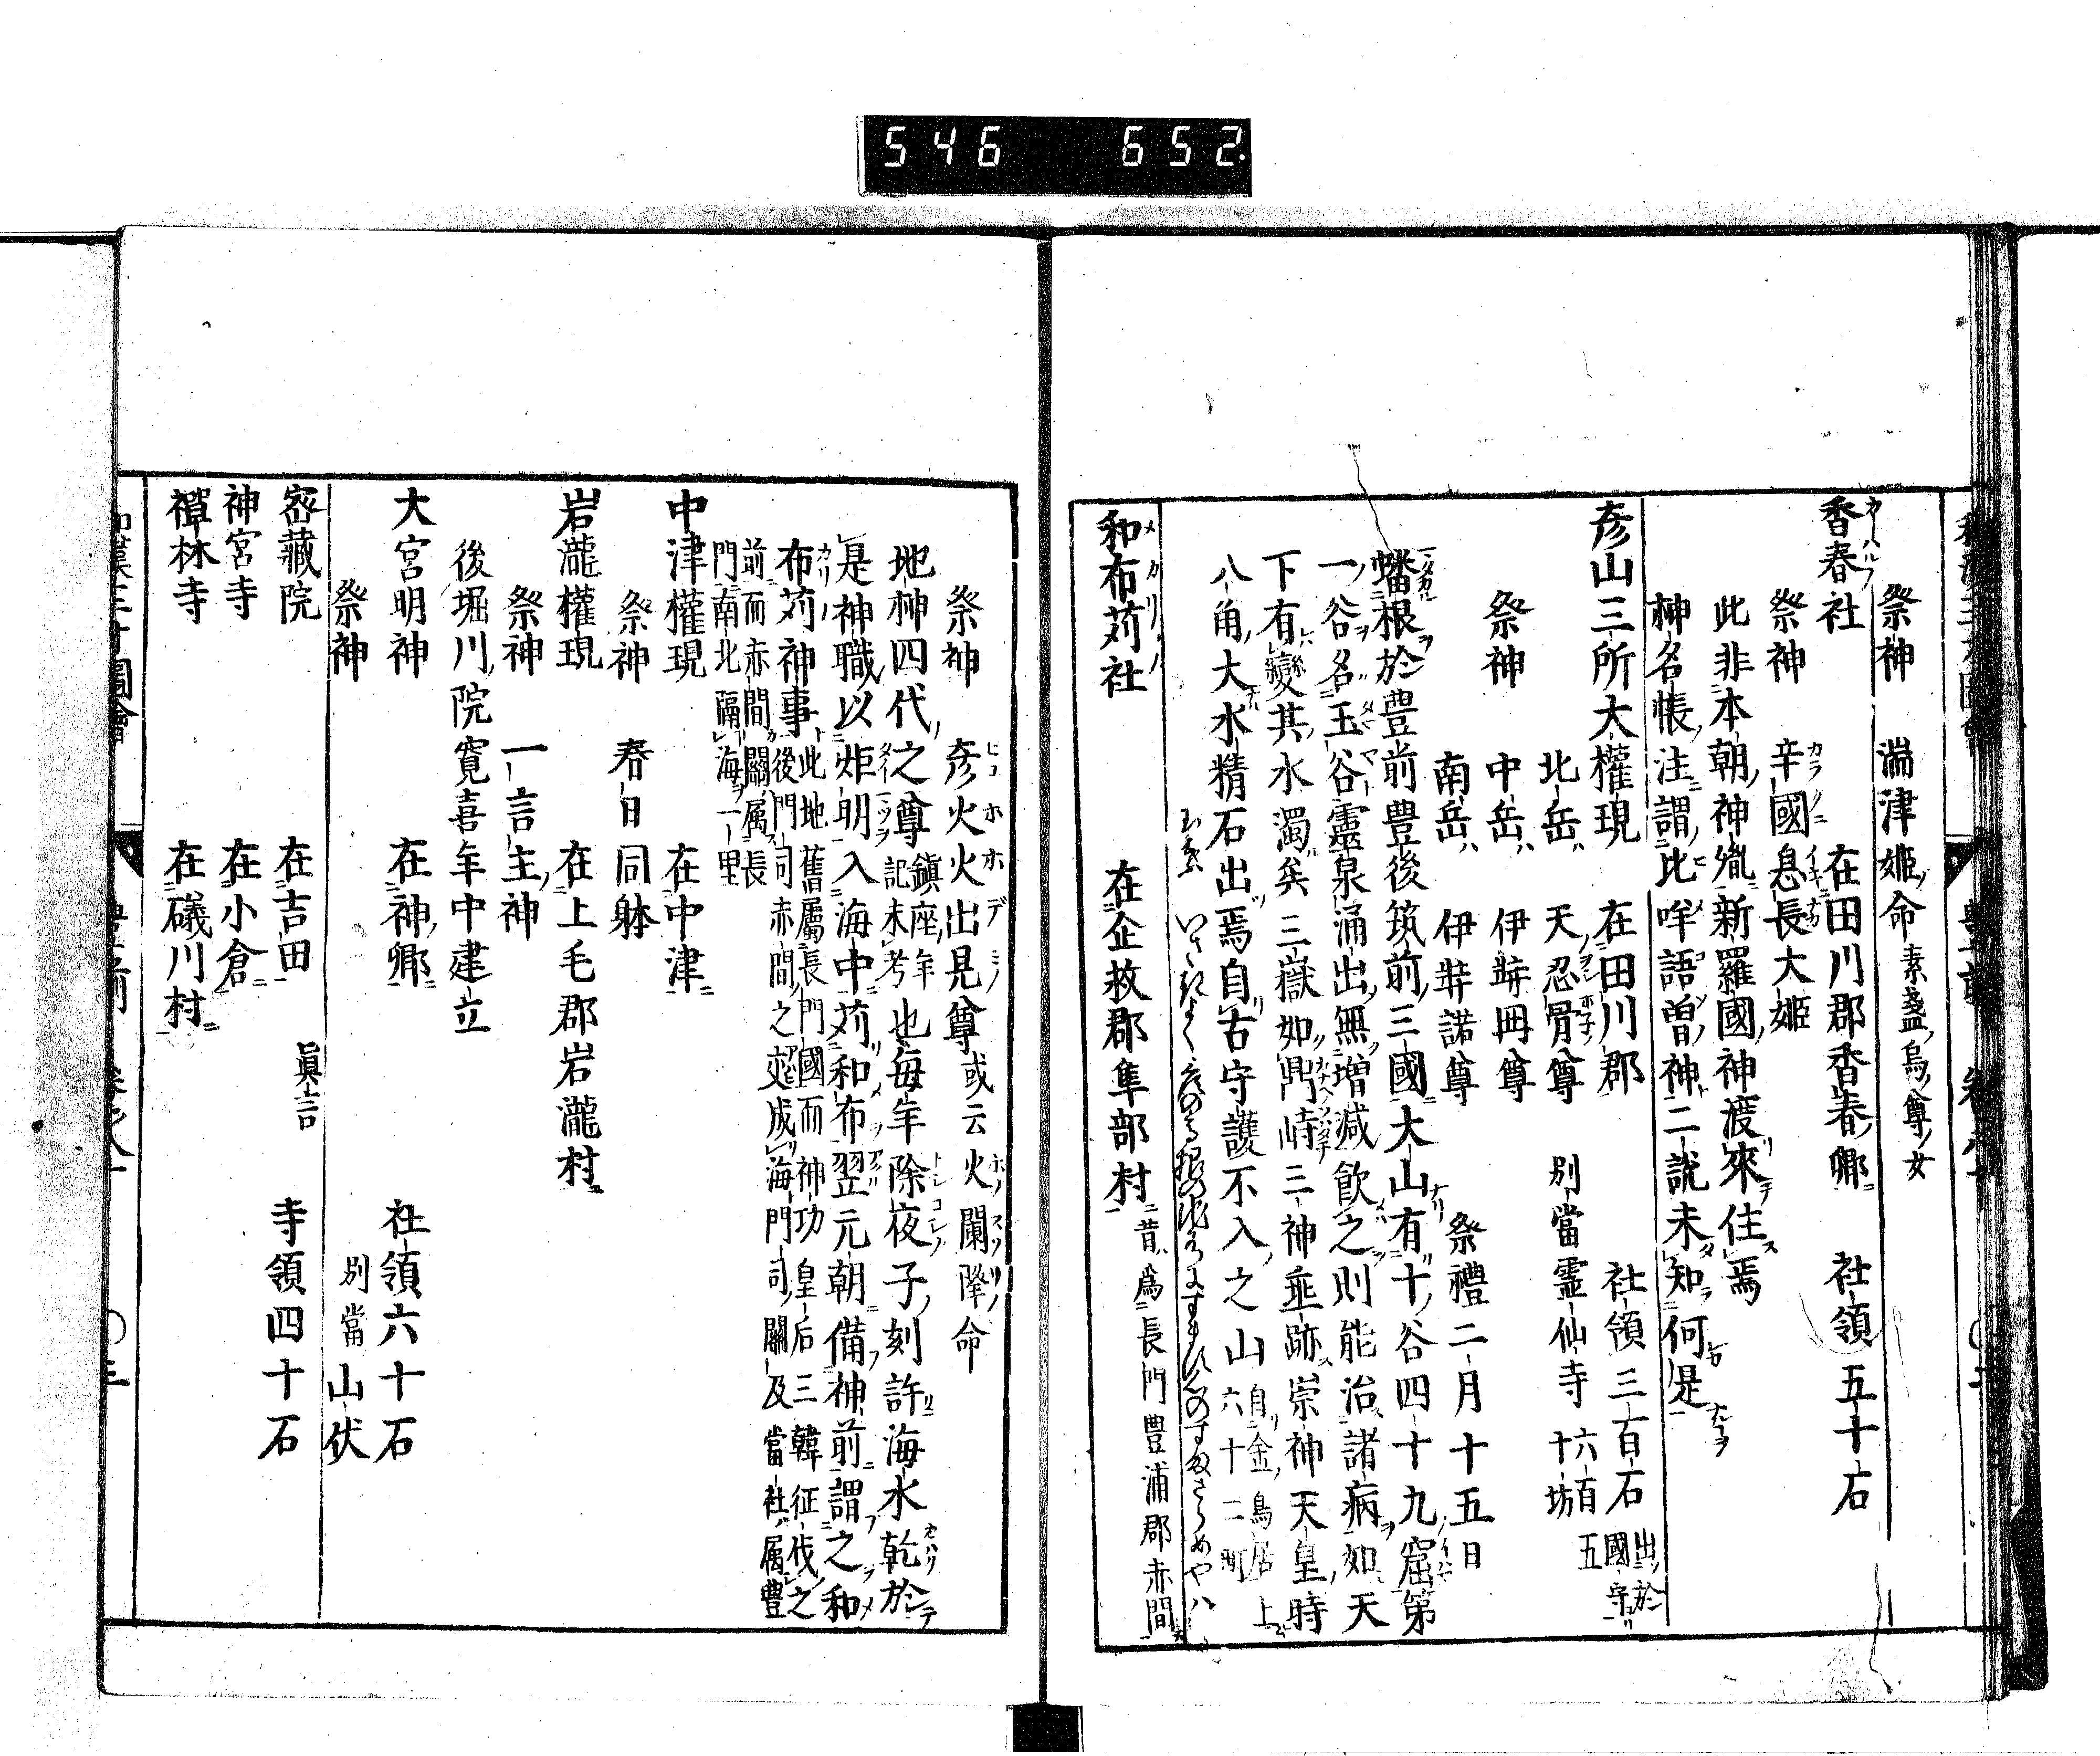 546 652
祭神 湍津姫命 素盞烏尊女
香春社 在田川郡香春郷 社領五十石
祭神 辛國息長大姫
此非本朝神䰟新羅國神渡來住焉
神名帳注謂比咩語曽神二說未知何是
彦山三所大權現 在田川郡 社領三百石 出於國守
北岳 天忍骨尊 別當霊仙寺 六百五十坊
祭神 中岳 伊弉冊尊
南岳 伊弉諾尊 祭禮二月十五日
蟠根於豊前豊後筑前三國大山有十谷四十九窟第
一谷名玉谷靈泉涌出無増減飲之則能治諸病如天
下有變其水濁矣三嶽如鼎峙三神垂跡崇神天皇時
八角大水精石出焉自古守護不入之山 自金鳥居上六十二町
和布苅社 在企救郡隼部村 昔爲長門豊浦郡赤間
祭神 彦火火出見尊 或云火闌降命
地神四代之尊 鎮座年記未考 也毎年除夜子刻許海水乾於
是神職以炬明入海中苅和布翌元朝備神前謂之和
布苅神事 此地舊屬長門國而神功皇后三韓征伐之後門司赤間之迩成海門司關及當社属豊
前而赤間關属長門南北隔海一里
中津權現 在中津
祭神 春日同躰
岩瀧權現 在上毛郡岩瀧村
祭神 一言主神
後堀川院寛喜年中建立
大宮明神 在神郷 社領六十石
祭神 別當山伏
宻藏院 在吉田 眞言 寺領四十石
神宮寺 在小倉
禪林寺 在礒川村